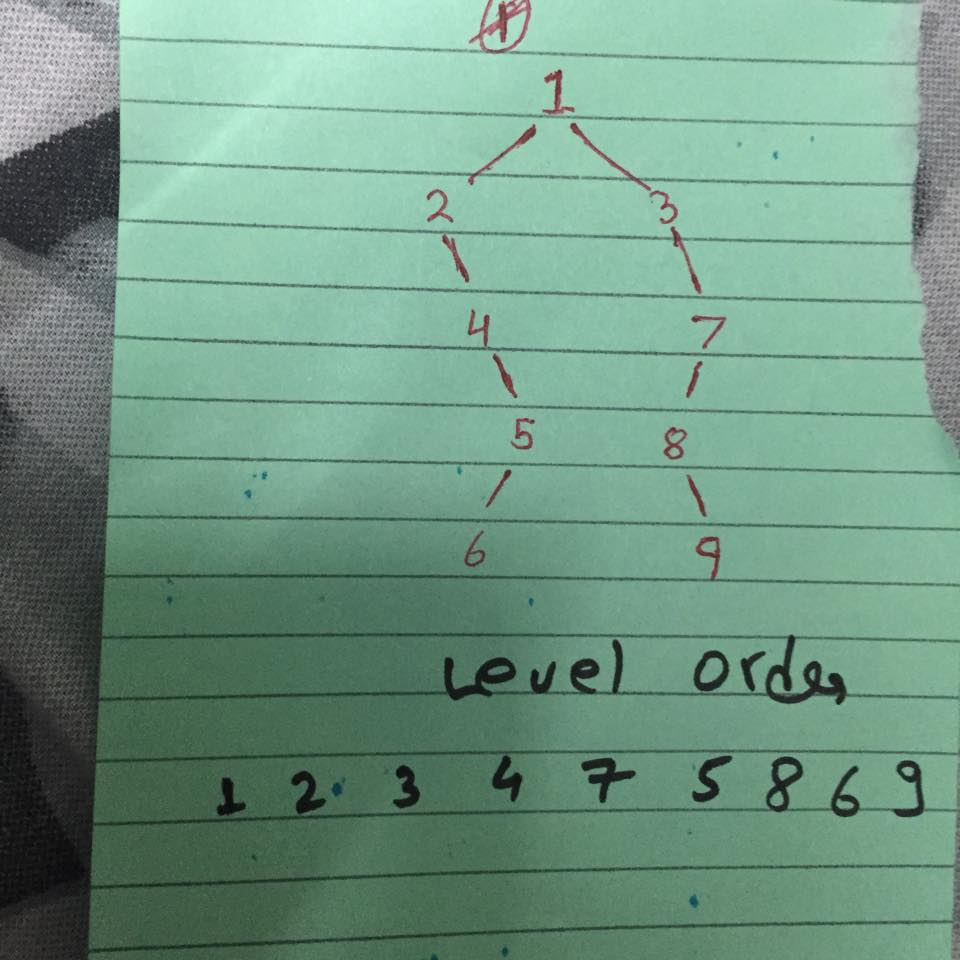 1
2 3
4 7
5 8
6 9
Level Order
1 2 3 4 7 5 8 6 9